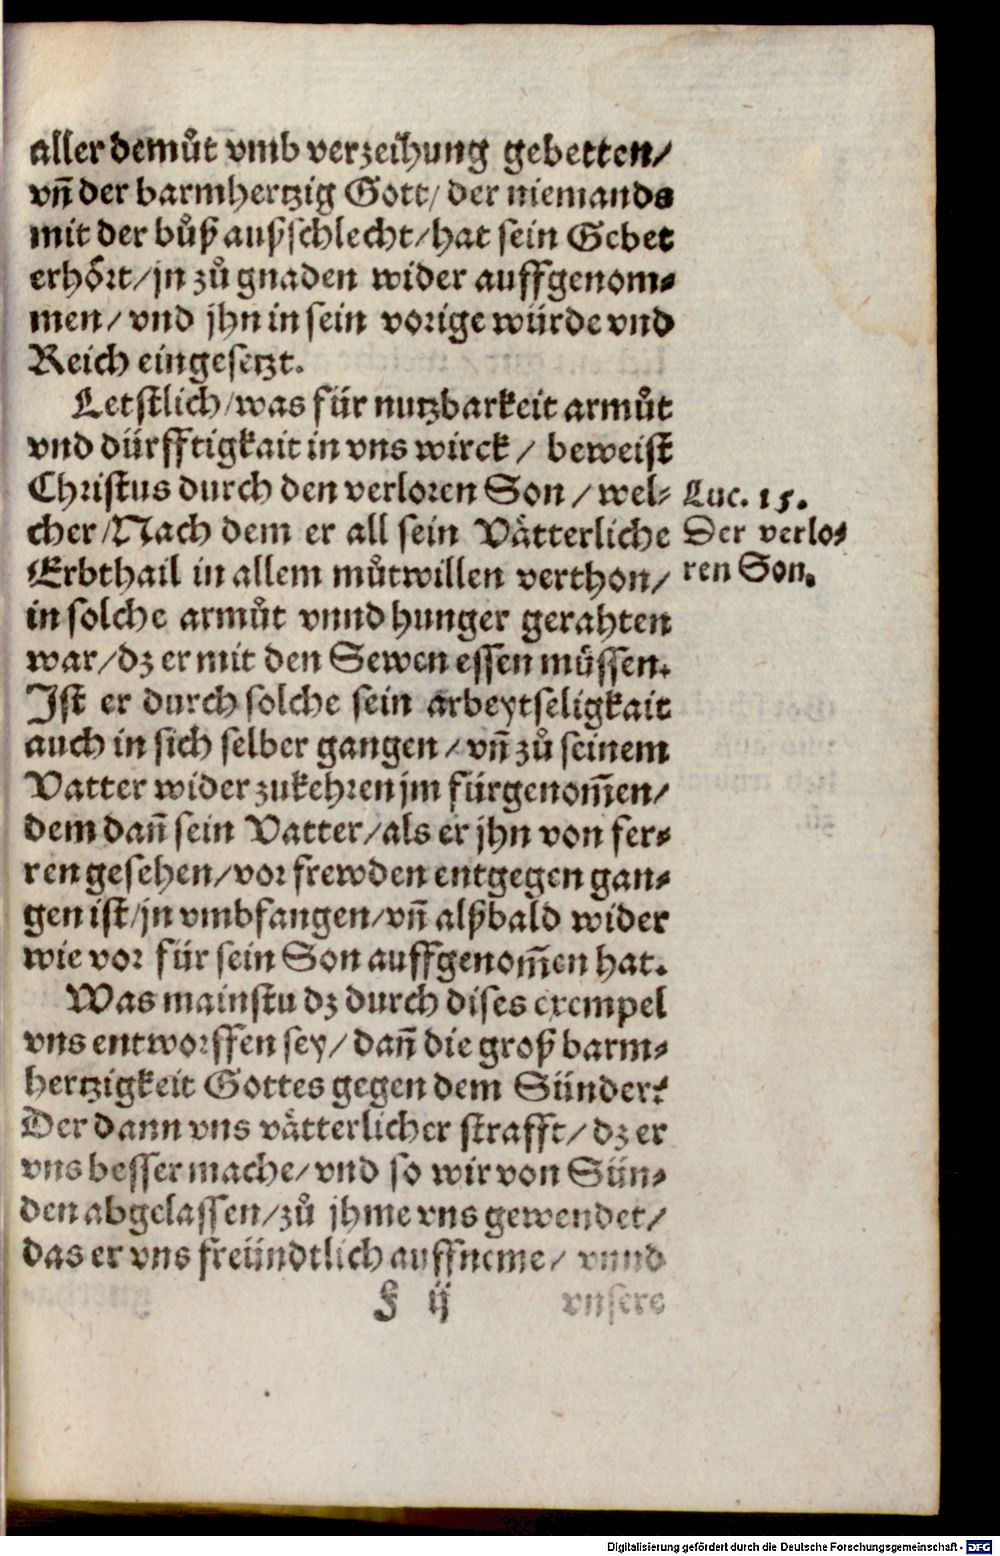 aller demůt vmb verzeihung gebetten/
vñ der barmhertzig Gott/ der niemands
mit der bůß außschlecht/hat sein Gebet
erhört/jn zů gnaden wider auffgenom-
men/ vnd jhn in sein vorige würde vnd
Reich eingesetzt.
Letstlich/was für nutzbarkeit armůt
vnd dürfftigkait in vns wirck/ beweist
Christus durch den verloren Son/ wel-
cher/Nach dem er all sein Vätterliche
Erbthail in allem můtwillen verthon/
in solche armůt vnnd hunger gerahten
war/dz er mit den Sewen essen müssen.
Ist er durch solche sein arbeytseligkait
auch in sich selber gangen/ vñ zů seinem
Vatter wider zukehren jm fürgenom̃en/
dem dañ sein Vatter/als er jhn von fer-
ren gesehen/vor frewden entgegen gan-
gen ist/jn vmbfangen/vñ alßbald wider
wie vor für sein Son auffgenom̃en hat.
Was mainstu dz durch dises exempel
vns entworffen sey/ dañ die groß barm-
hertzigkeit Gottes gegen dem Sünder?
Der dann vns vätterlicher strafft/ dz er
vns besser mache/vnd so wir von Sün-
den abgelassen/zů jhme vns gewendet/
das er vns freündtlich auffneme/ vnnd
F ij vnsere
Luc. 15.
Der verlo-
ren Son.
Digitalisierung gefördert durch die Deutsche Forschungsgemeinschaft - DFG